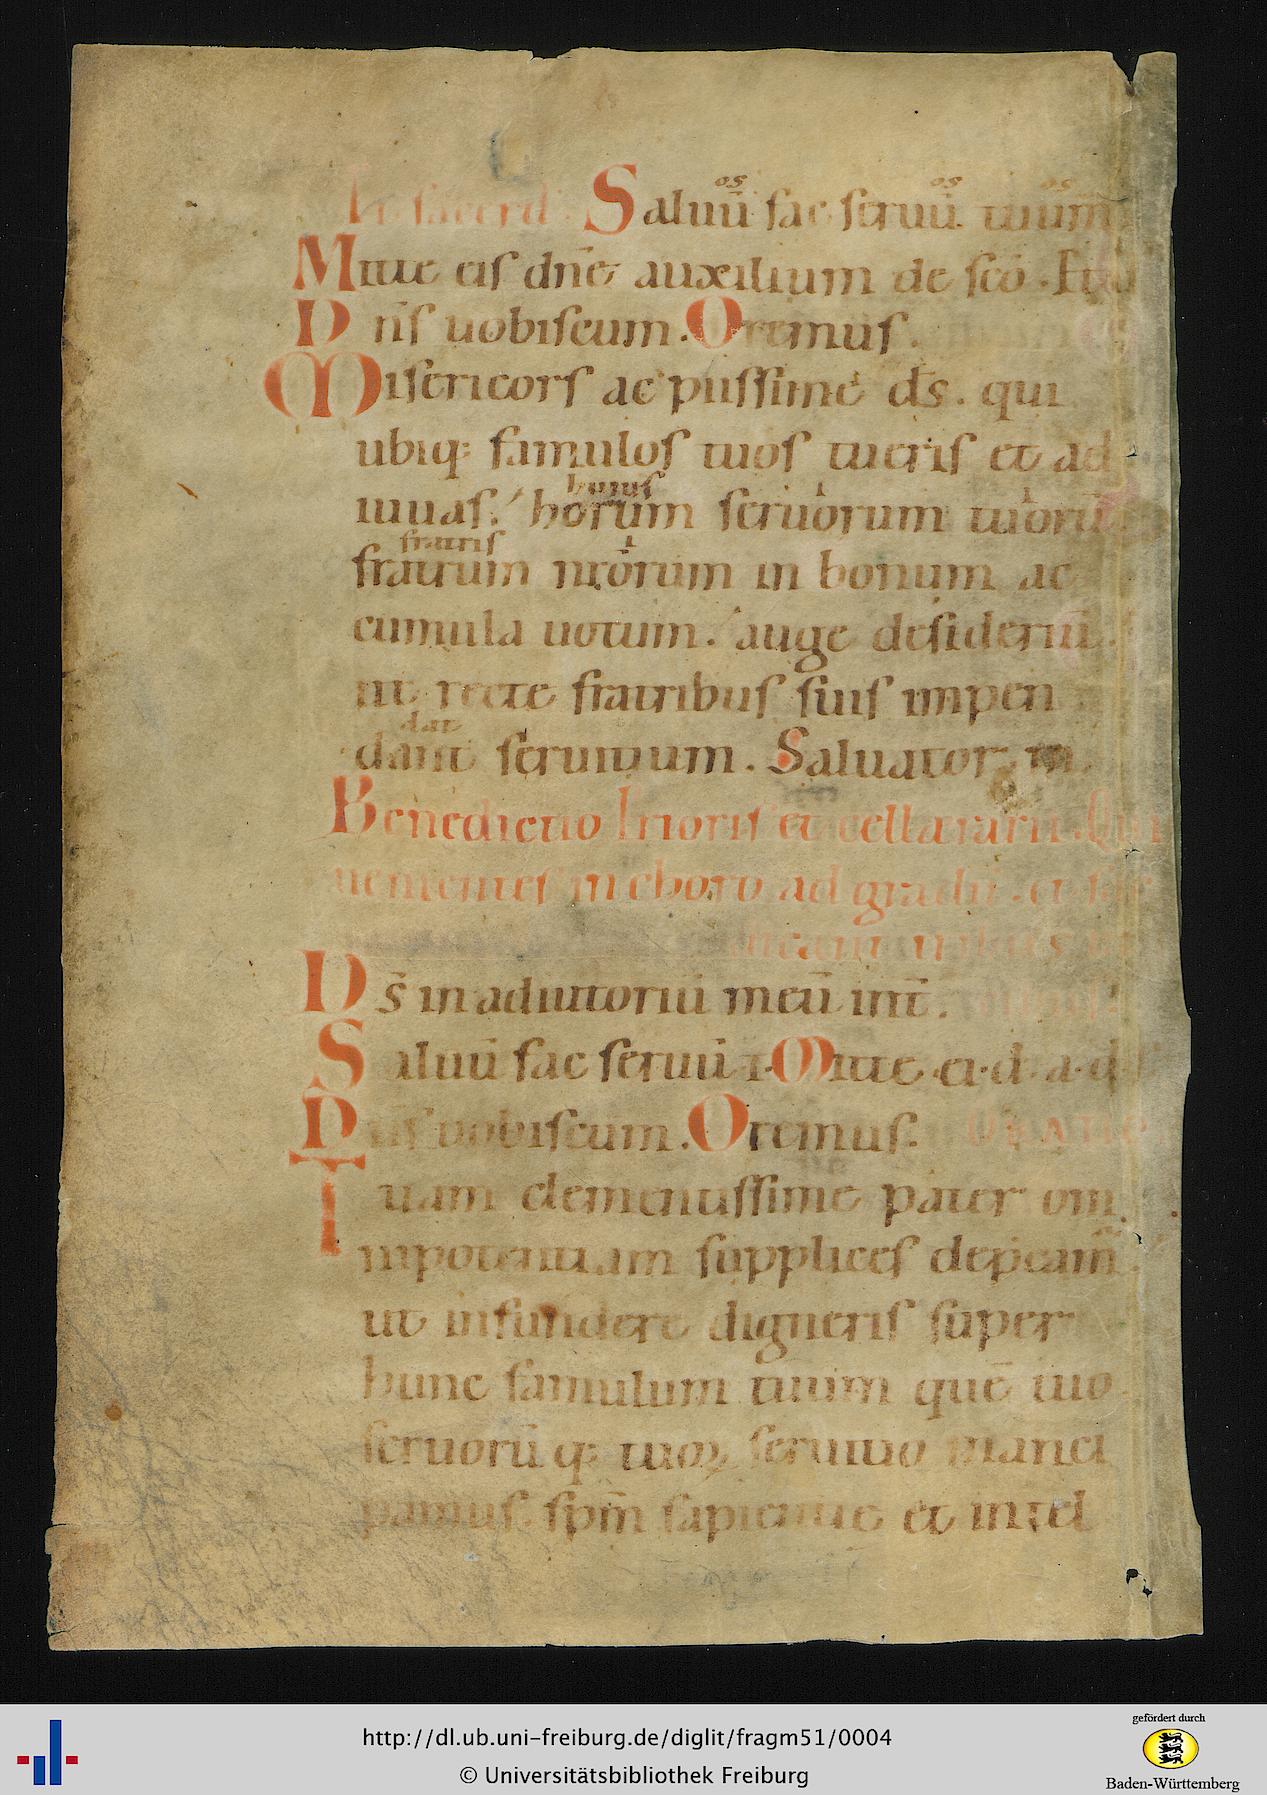 Saluū os fac seruū os tuum os
Mitte eis dn̄e auxilium de sc̄o. Et
Dn̄s uobiscum. Oremus.
Misericors ac piissime ds. qui
ubiq; famulos tuos tueris et ad
huius
iuuas. horum seruorum tuorū
fratris
fratrum nrorum in bonum ac
cumula uotum. auge desideriū.
ut recte fratribus suis impen
dat
dant seruitium. Saluator m
Benedictio Prioris et cellararii. Qui
uenientes in choro ad gradū. et
Ds̄ in adiutoriū meū int̄.
Saluū fac seruū t. Mitte ei. d. a. d
Dn̄s uobiscum. Oremus. ORATIO
Tuam clementissime pater om
nipotentiam supplices dep̱cam̄
ut infundere digneris super
hunc famulum tuum quē tuo
seruorū q; tuoꝝ seruitio manci
pamus. spm̄ sapientie et intel
http://dl.ub.uni-freiburg.de/diglit/fragm51/0004
© Universitätsbibliothek Freiburg
gefördert durch
Baden-Württemberg